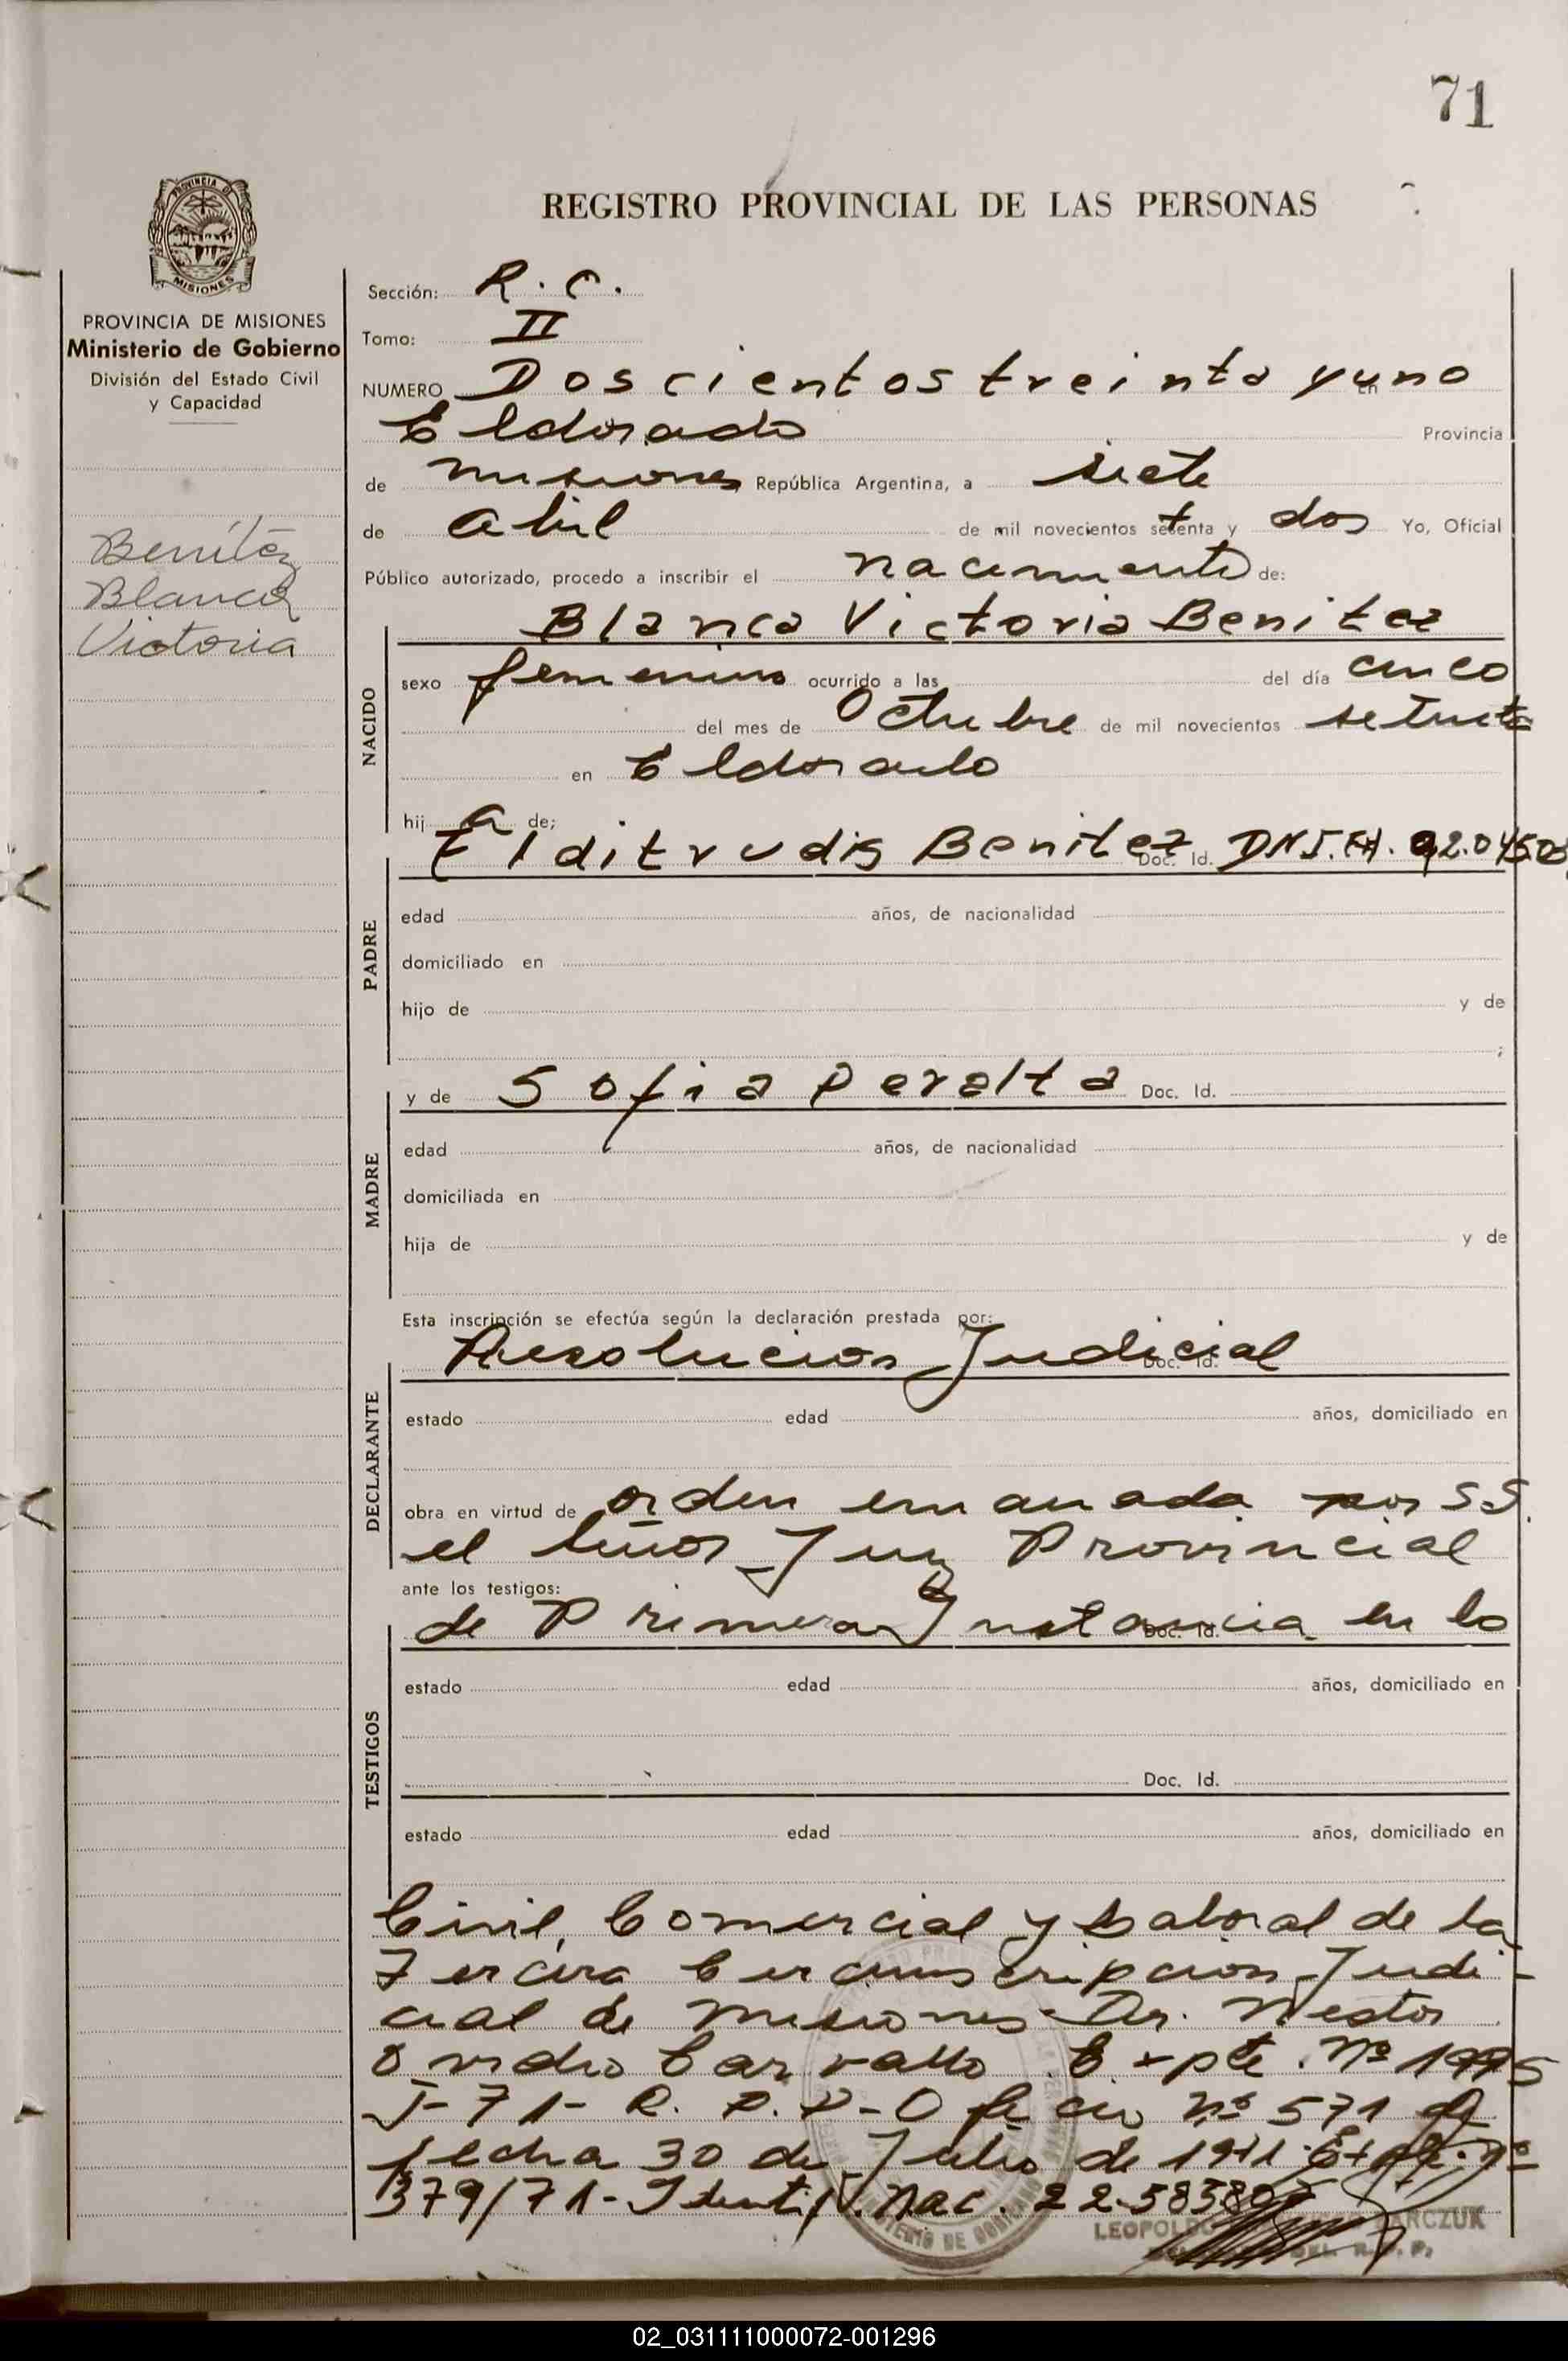 71
REGISTRO PROVINCIAL DE LAS PERSONAS
PROVINCIA DE MISIONES
MISIONES
PROVINCIA DE MISIONES
Ministerio de Gobierno
División del Estado Civil
y Capacidad
Benítez
Blanca
Victoria
Sección: R. C.
Tomo: II
NUMERO Doscientos treinta y uno en
Eldorado Provincia
de Misiones República Argentina, a siete
de Abril de mil novecientos setenta y dos Yo, Oficial
Público autorizado, procedo a inscribir el nacimiento de:
Blanca Victoria Benitez
NACIDO
sexo femenino ocurrido a las del día cinco
del mes de Octubre de mil novecientos setenta
en Eldorado
hij a de;
Elditrudis Benitez Doc. Id. DNI.
PADRE
edad años, de nacionalidad
domiciliado en
hijo de y de
;
y de Sofia Peralta Doc. Id.
MADRE
edad años, de nacionalidad
domiciliada en
hija de y de
Esta inscripción se efectúa según la declaración prestada por:
Resolucion Judicial Doc. Id.
DECLARANTE
estado edad años, domiciliado en
obra en virtud de orden emanada por S.S.
el Señor Juez Provincial
ante los testigos:
de Primera Instancia en lo Doc. Id.
TESTIGOS
estado edad años, domiciliado en
Doc. Id.
estado edad años, domiciliado en
Civil, Comercial y Laboral de la
Tercera Circunscripcion Judi-
cial de Misiones Dr. Nestor
Ovidio Carvallo. Expte. Nº 1995
J-71- R. P. P- Oficio Nº 571 de
fecha 30 de Julio de 1971. Expte. Nº
379/71- Identif. Nac. 22.583807
LEOPOLDO
DEL R. P. P.
02_031111000072-001296